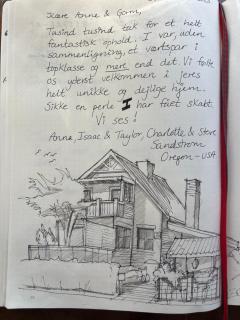 Kære Anne & Gorm,
Tusind tusind tak for et helt
fantastisk ophold. I var, uden
sammenligning, et værtspar i
topklasse og mere end det. Vi følte
os yderst velkommen i jeres
helt unikke og dejlige hjem.
Sikke en perle I har fået skabt.
Vi ses!
Anna, Isaac & Taylor, Charlotte & Steve
Sandstrom
Oregon - USA